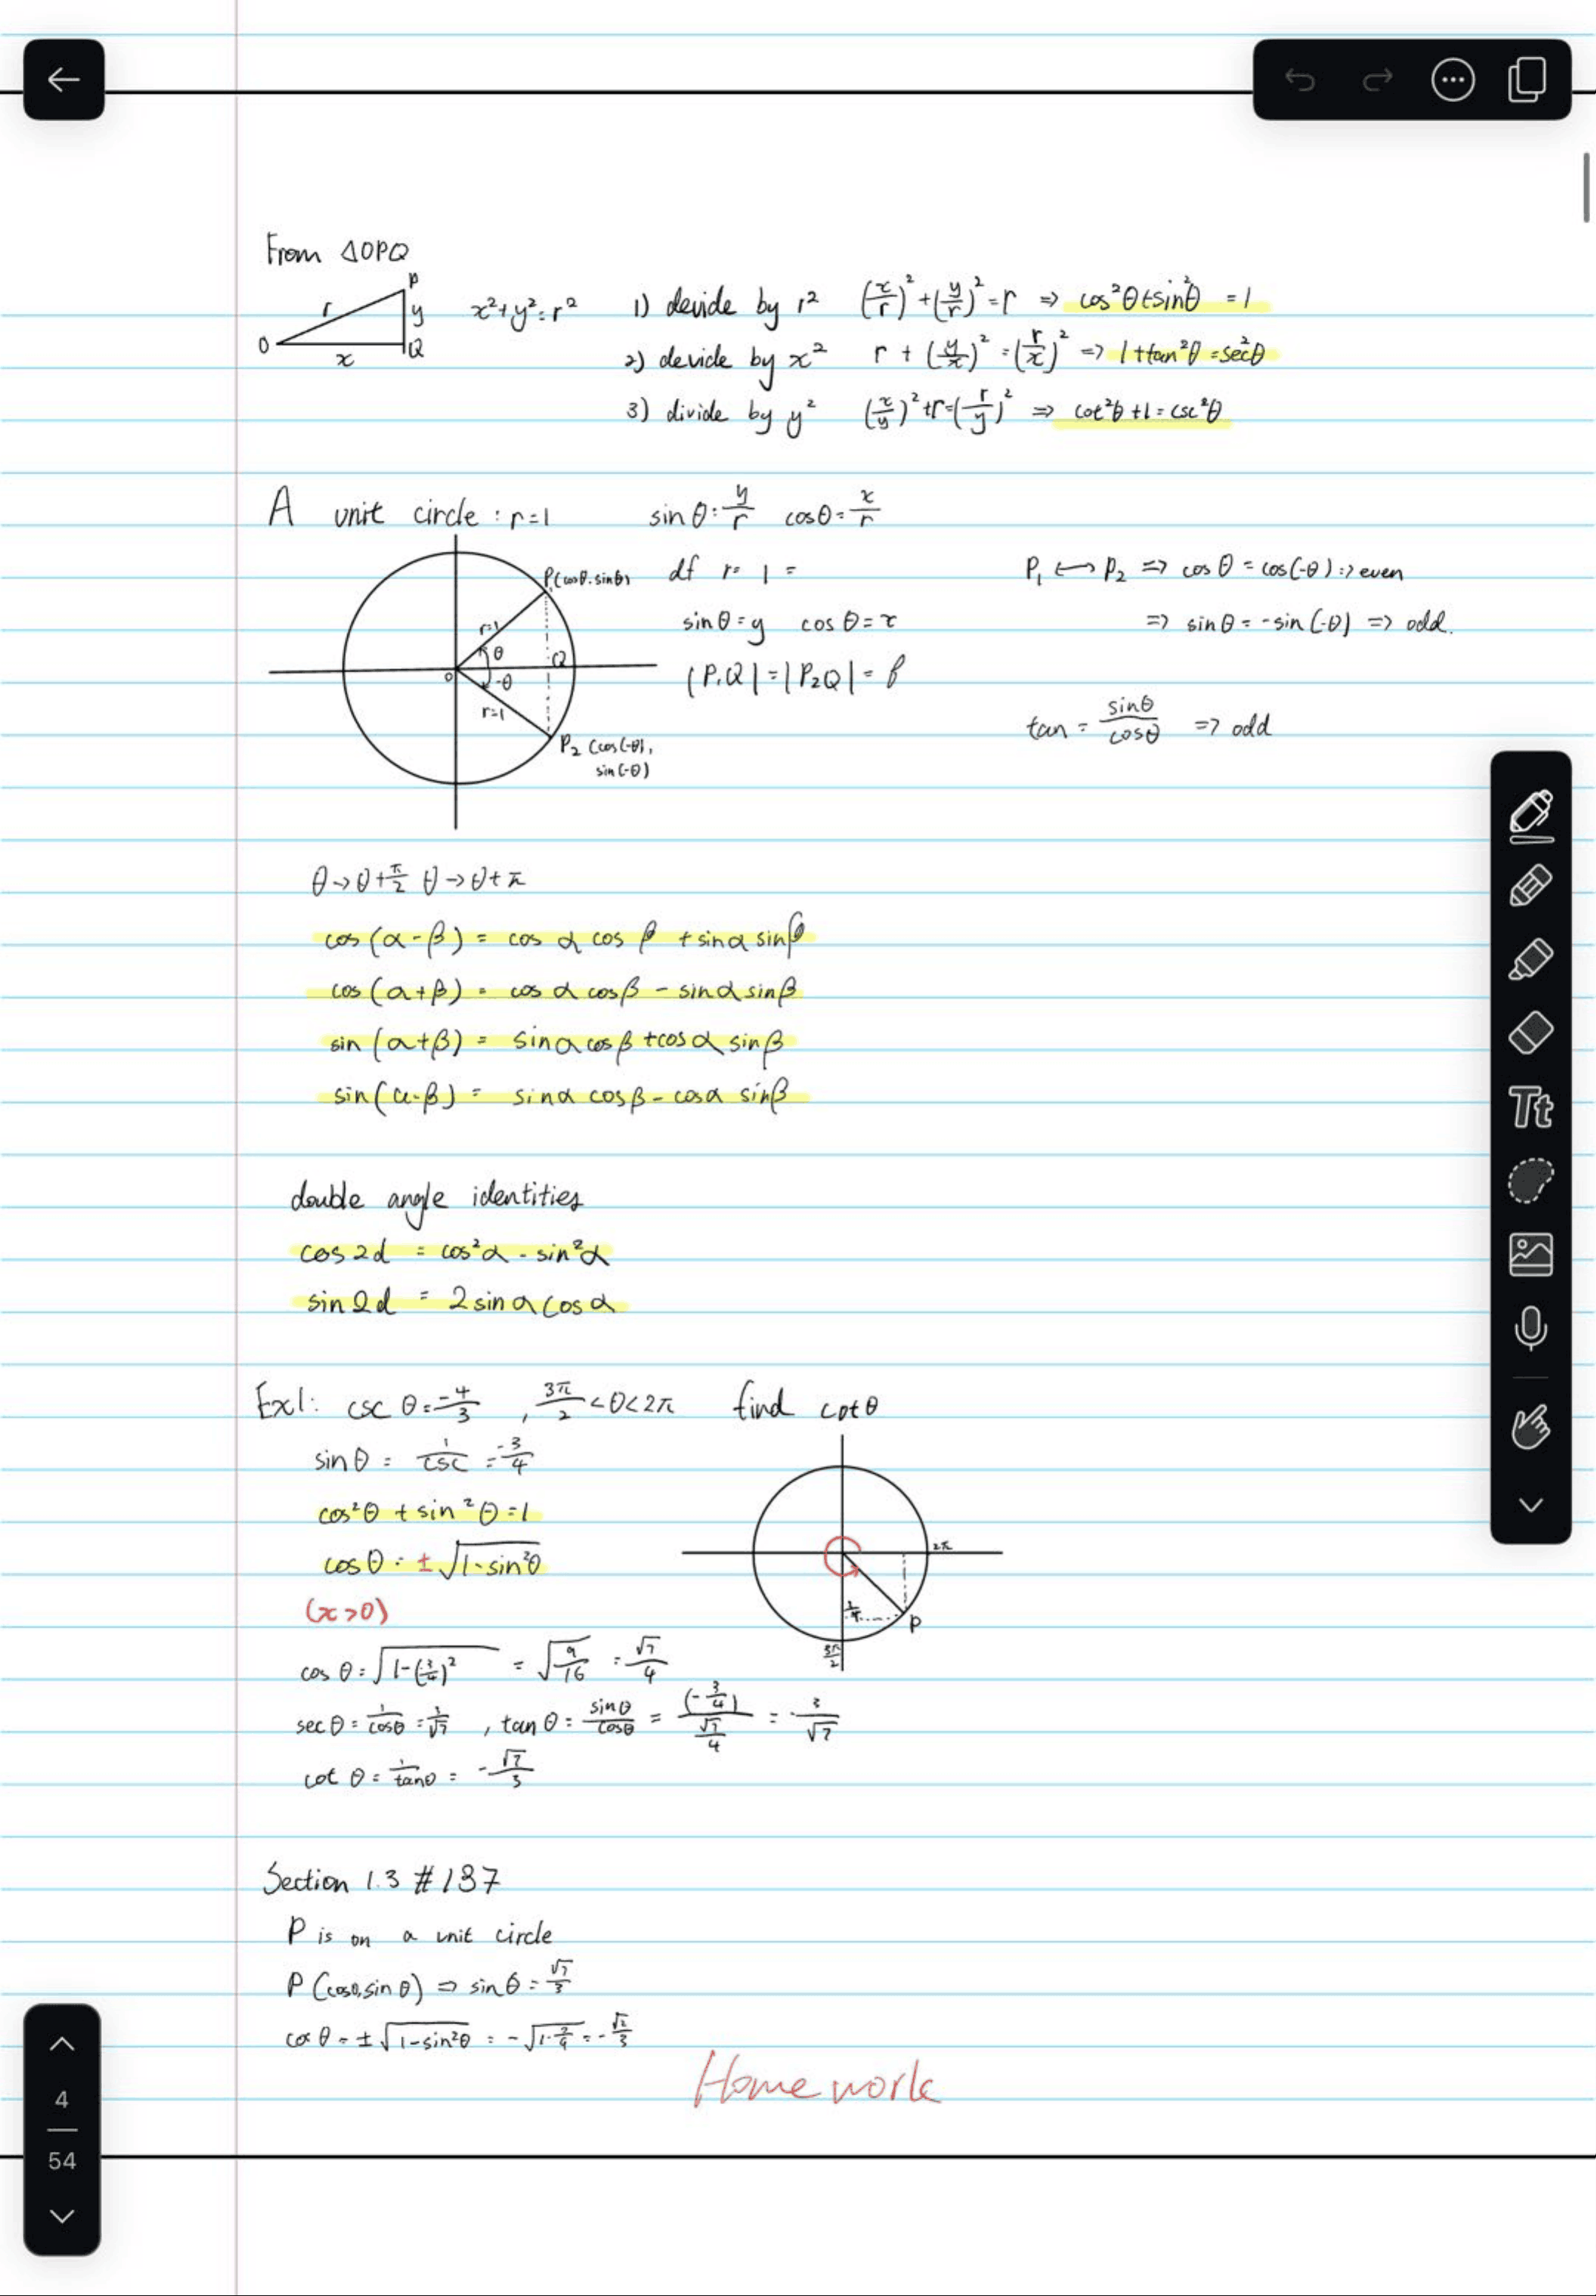 From △OPQ
P
r
y
O
x
Q
x²+y²=r²
1) devide by r² (x/r)²+(y/r)²=r ⇒ cos²θ+sin²θ =1
2) devide by x² r + (y/x)² = (r/x)² => 1+tan²θ=sec²θ
3) divide by y² (x/y)²+r=(r/y)² ⇒ cot²θ+1=csc²θ
A unit circle : r=1 sinθ=y/r cosθ=x/r
P(cosθ.sinθ)
r=1
θ
Q
O
-θ
r=1
P₂ (cos(-θ),
sin(-θ)
r= 1 =
sinθ=y cosθ=x
|P₁Q|=|P₂Q|=
P₁ ↔ P₂ => cosθ=cos(-θ) => even
=> sinθ=-sin(-θ) => odd.
tan = sinθ/cosθ => odd
θ→θ+π/2 θ→θ+π
cos(α-β) = cosα cosβ +sinα sinβ
cos(α+β) = cosα cosβ - sinα sinβ
sin(α+β) = sinα cosβ +cosα sinβ
sin(α-β) = sinα cosβ - cosα sinβ
double angle identities
cos2α = cos²α - sin²α
sin2α = 2sinα cosα
Ex1: cscθ=-4/3 , 3π/2<θ<2π find cotθ
sinθ = 1/csc = -3/4
cos²θ + sin²θ=1
cosθ = ±√(1-sin²θ)
(x>0)
2π
P
3π/2
cosθ=√(1-(3/4)²) = √(9/16) = √7/4
secθ=1/cosθ= , tanθ= sinθ/cosθ = (-3/4)/(√7/4) = -3/√7
cotθ=1/tanθ= -√7/3
Section 1.3 #137
P is on a unit circle
P(cosθ,sinθ) ⇒ sinθ=√7/3
cosθ=±√(1-sin²θ) = -√(1-7/9) = -√2/3
Homework
4
54
Tt